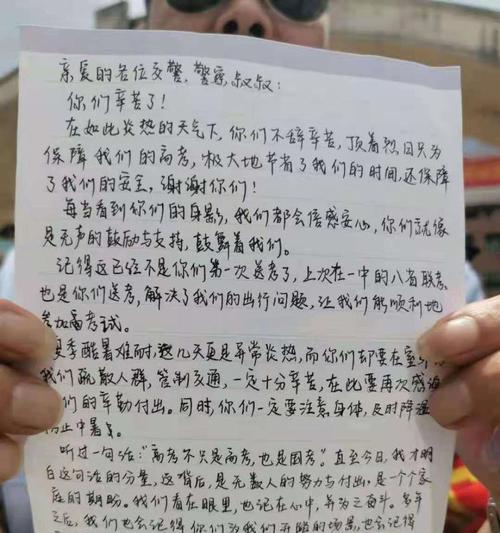 亲爱的各位交警,警察叔叔:
你们辛苦了!
在如此炎热的天气下,你们不辞辛苦,顶着烈日只为
保障我们的高考,极大地节省了我们的时间,还保障
了我们的安全,谢谢你们!
每当看到你们的身影,我们都会倍感安心,你们就像
是无声的鼓励与支持,鼓舞着我们。
记得这已经不是你们第一次送考了,上次在一中的八省联考,
也是你们送考,解决了我们的出行问题,让我们能顺利地
参加高考试。
夏季酷暑难耐,这几天更是异常炎热,而你们却要在室外
我们疏散人群,管制交通,一定十分辛苦,在此要再次感谢
们的辛勤付出。同时,你们一定要注意身体,及时降温
防止中暑。
听过一句话:"高考不只是高考,也是国考。"直至今日,我才明
白这句话的分量,这背后,是无数人的努力与付出,是一个个家
庭的期盼。我们看在眼里,也记在心中,并为之奋斗。多年
之后,我们也会记得你们为我们开路的场景,也会记得